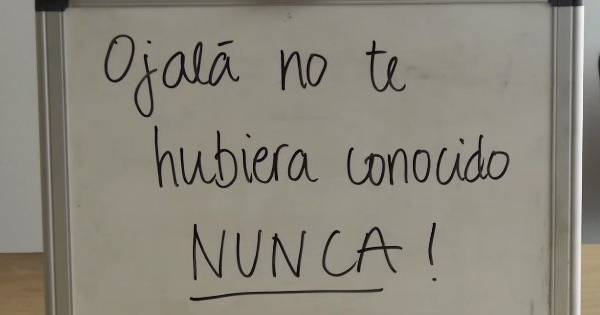 Ojalá no te
hubiera conocido
NUNCA!